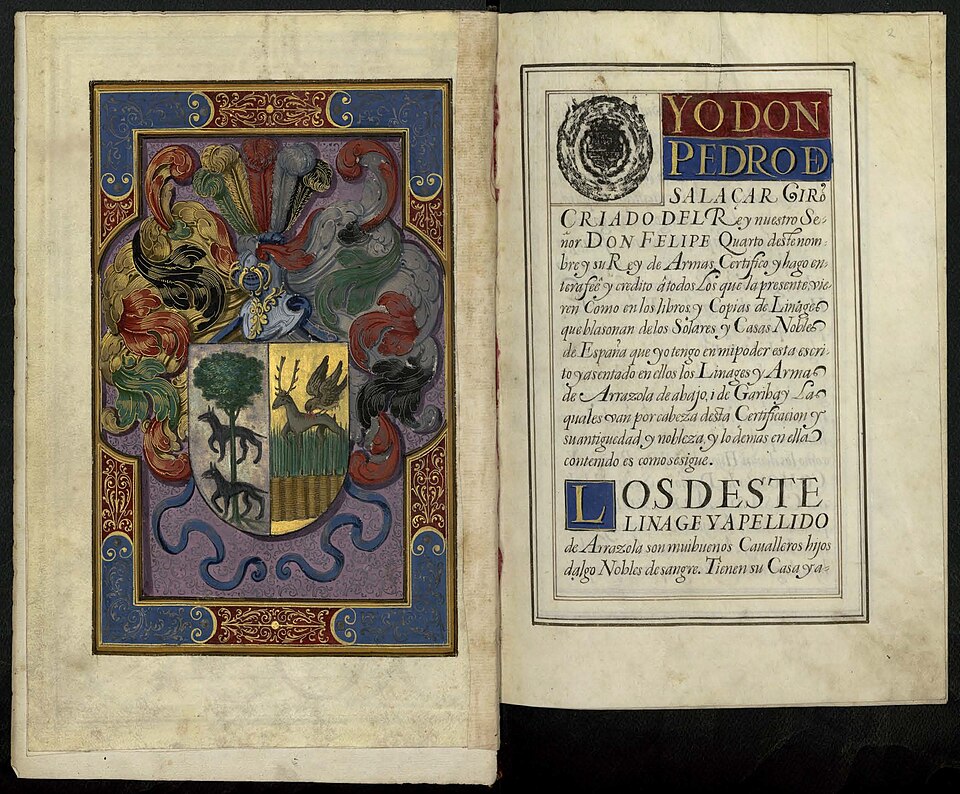 2
YO DON
PEDRO DE
SALAÇAR Girō
CRIADO DEL Rey nuestro Se-
ñor DON FELIPE Quarto deste nom-
bre y su Rey de Armas, Certifico y hago en-
tera feè y credito a todos Los que la presente vie-
ren Como en los libros y Copias de Linages
que blasonan de los Solares y Casas Nobles
de España que yo tengo en mi poder esta escri-
to y asentado en ellos los Linages y Armas
de Arrazola de abajo, i de Garibay Las
quales van por cabeza desta Certificacion y
su antiguedad y nobleza, y lo demas en ella
contenido es como se sigue.
LOS DESTE
LINAGE Y APELLIDO
de Arrazola son mui buenos Caualleros hijos
dalgo Nobles de sangre. Tienen su Casa y a-